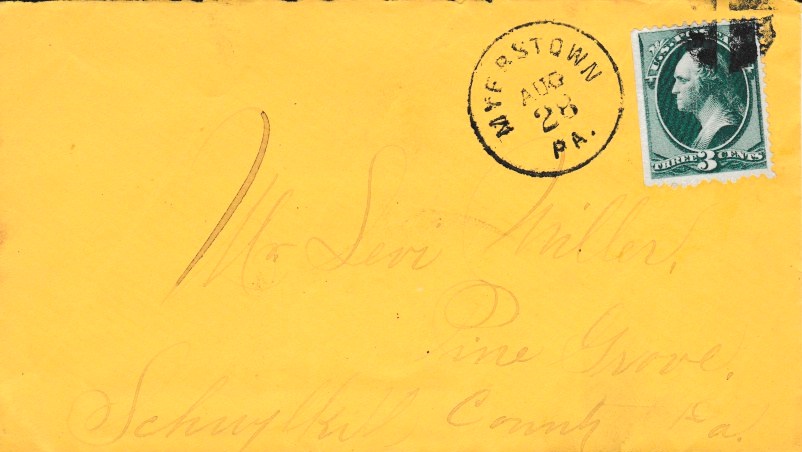 MYERSTOWN
AUG
28
PA.
THREE 3 CENTS
Mr Levi Miller,
Pine Grove,
Schuylkill County Pa.